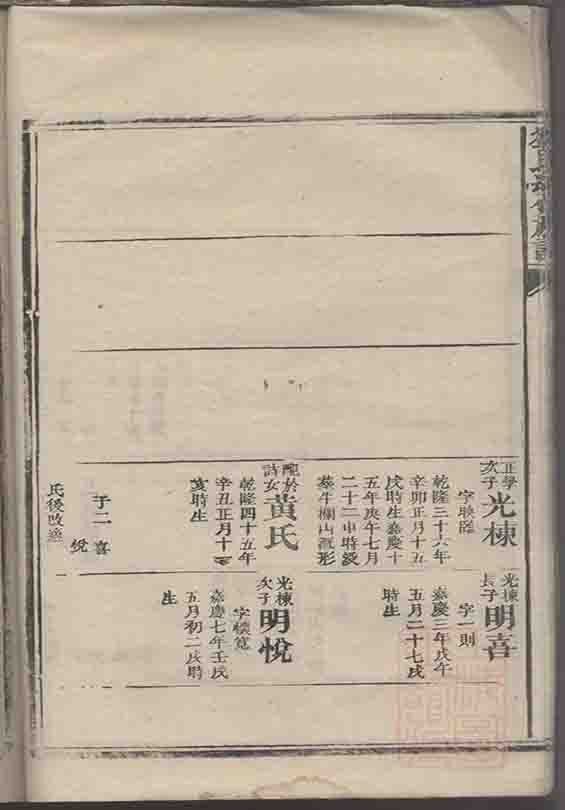 正學
次子
光棟
乾隆三十六年
辛卯正月十五
戌時生嘉慶十
五年庚午七月
二十二申時歿
葬牛欄山
形
配於
詩女
黃氏
乾隆四十五年
辛丑正月十
亥時生
子二 喜
悅
氏後改適
光棟
長子
明喜
字一則
嘉慶三年戊午
五月二十七戌
時生
光棟
次子
明悅
字
寬
嘉慶七年壬戌
五月初二戌時
生